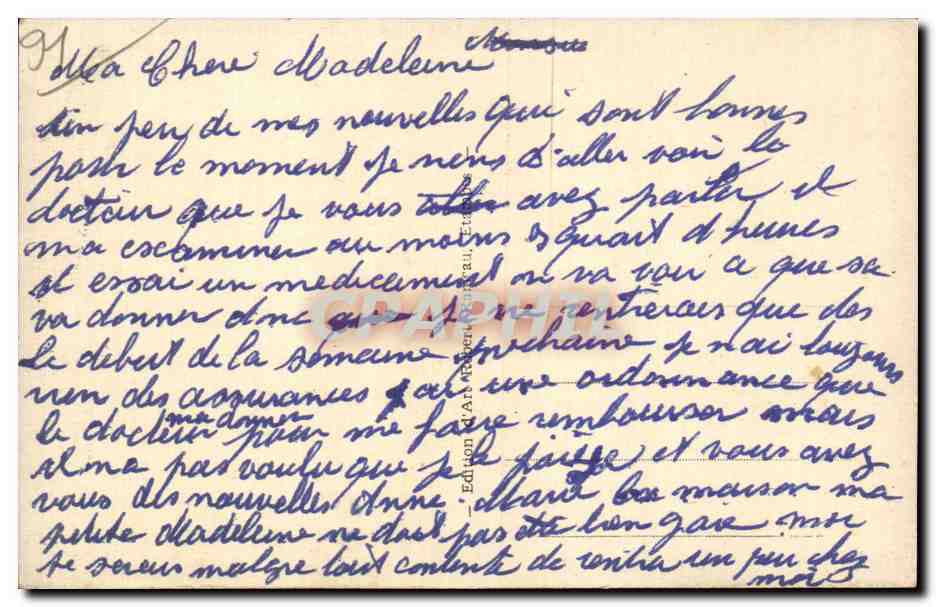 91
Ma Chere Madeleine
un peu de mes nouvelles qui sont bonnes
pour le moment je viens d'aller voir le
docteur que je vous avez parler il
ma escaminer au moins 3 quart d heures
et essai un medicament on va voir ce que sa
va donner donc je ne rentrerais que des
le debut de la semaine prochaine je n ai toujours
rien des assurances j ai une ordonnance que
le docteur ma donner pour me faire rembourser mais
il ma pas voulu que je le paièје et vous avez
vous des nouvelles Anne-Marie la maison ma
petite Madeleine ne doit pas être bien gaie moi
je serais malgre tout contente de rentrer un peu chez
moi
Edition d'Art Robert Rameau, Etampes
CPAPHIL